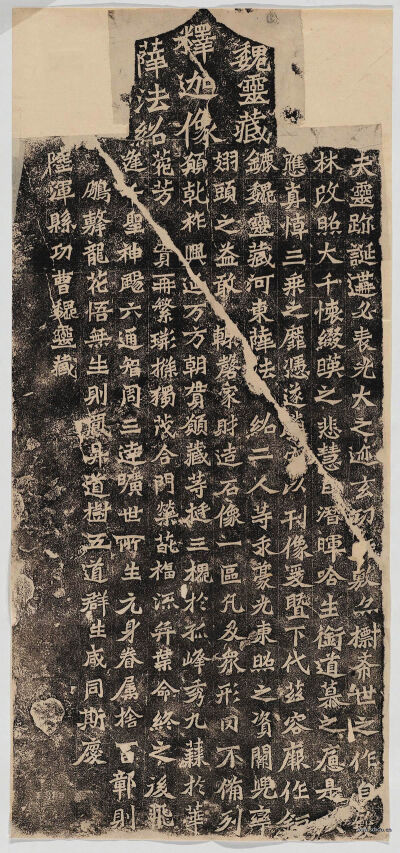 魏靈藏
釋迦像
薛法紹
夫靈跡誕遘必表光大之迹玄功敷標希世之作自
林改昭大千懷綴暎之悲慧日潛暉唅生銜道慕之是
應真悼三乘之靡憑遂以刊像爰暨下代茲容厥作鉅
鹿魏靈藏河東薛法紹二人等求豪光東照之資闕兜率
翅頭之益敢輒磬家財造石像一區凡及眾形罔不備列
願乾祚興延万方朝貫願藏等挺三槐於孤峰秀九蕀於華
苑芳實再繁荊條獨茂合門榮葩福流奕葉命終之後飛
逢千聖神颺六通智周三達曠世所生元身眷屬捨百鄣則
鵬擊龍花悟無生則鳳昇道樹五道群生咸同斯慶
陸渾縣功曹魏靈藏